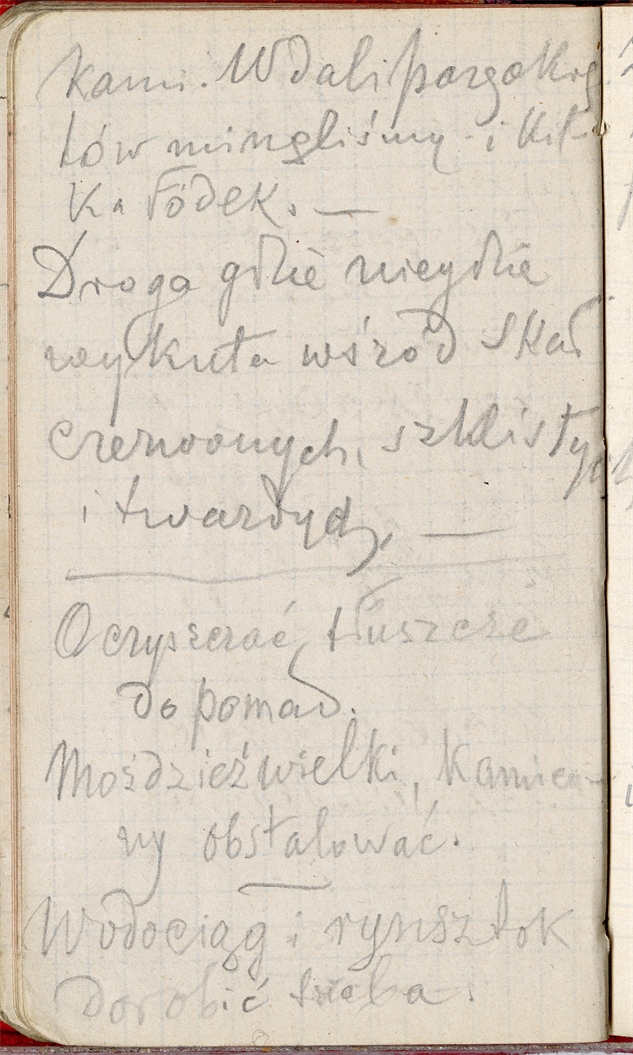 kami. W dali parę okrę
tów minęliśmy i kil-
ka łódek. —
Droga gdzie niegdzie
wykuta wśród skał
czerwonych, szklistych
i twardych, —
Oczyszczać tłuszcze
do pomad.
Moździeź wielki, kamien-
ny obstalować.
Wodociąg i rynsztok
dorobić trzeba.